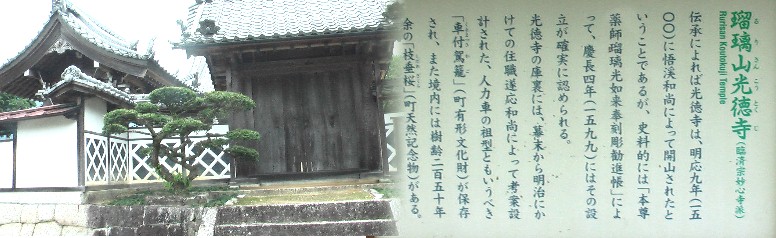 瑠璃山光徳寺（臨済宗妙心寺派）
るりさんこうとくじ
Rurisan Koutokuji Temple
伝承によれば光徳寺は、明応九年（一五
〇〇）に悟渓和尚によって開山されたと
いうことであるが、史料的には「本尊
薬師瑠璃光如来奉刻彫勧進帳」によ
って、慶長四年（一五九九）にはその設
立が確実に認められる。
光徳寺の庫裏には、幕末から明治にか
けての住職遂応和尚によって考案設
計された、人力車の祖型ともいうべき
「車付駕籠」（町有形文化財）が保存
され、また境内には樹齢二百五十年
余の「枝垂桜」（町天然記念物）がある。